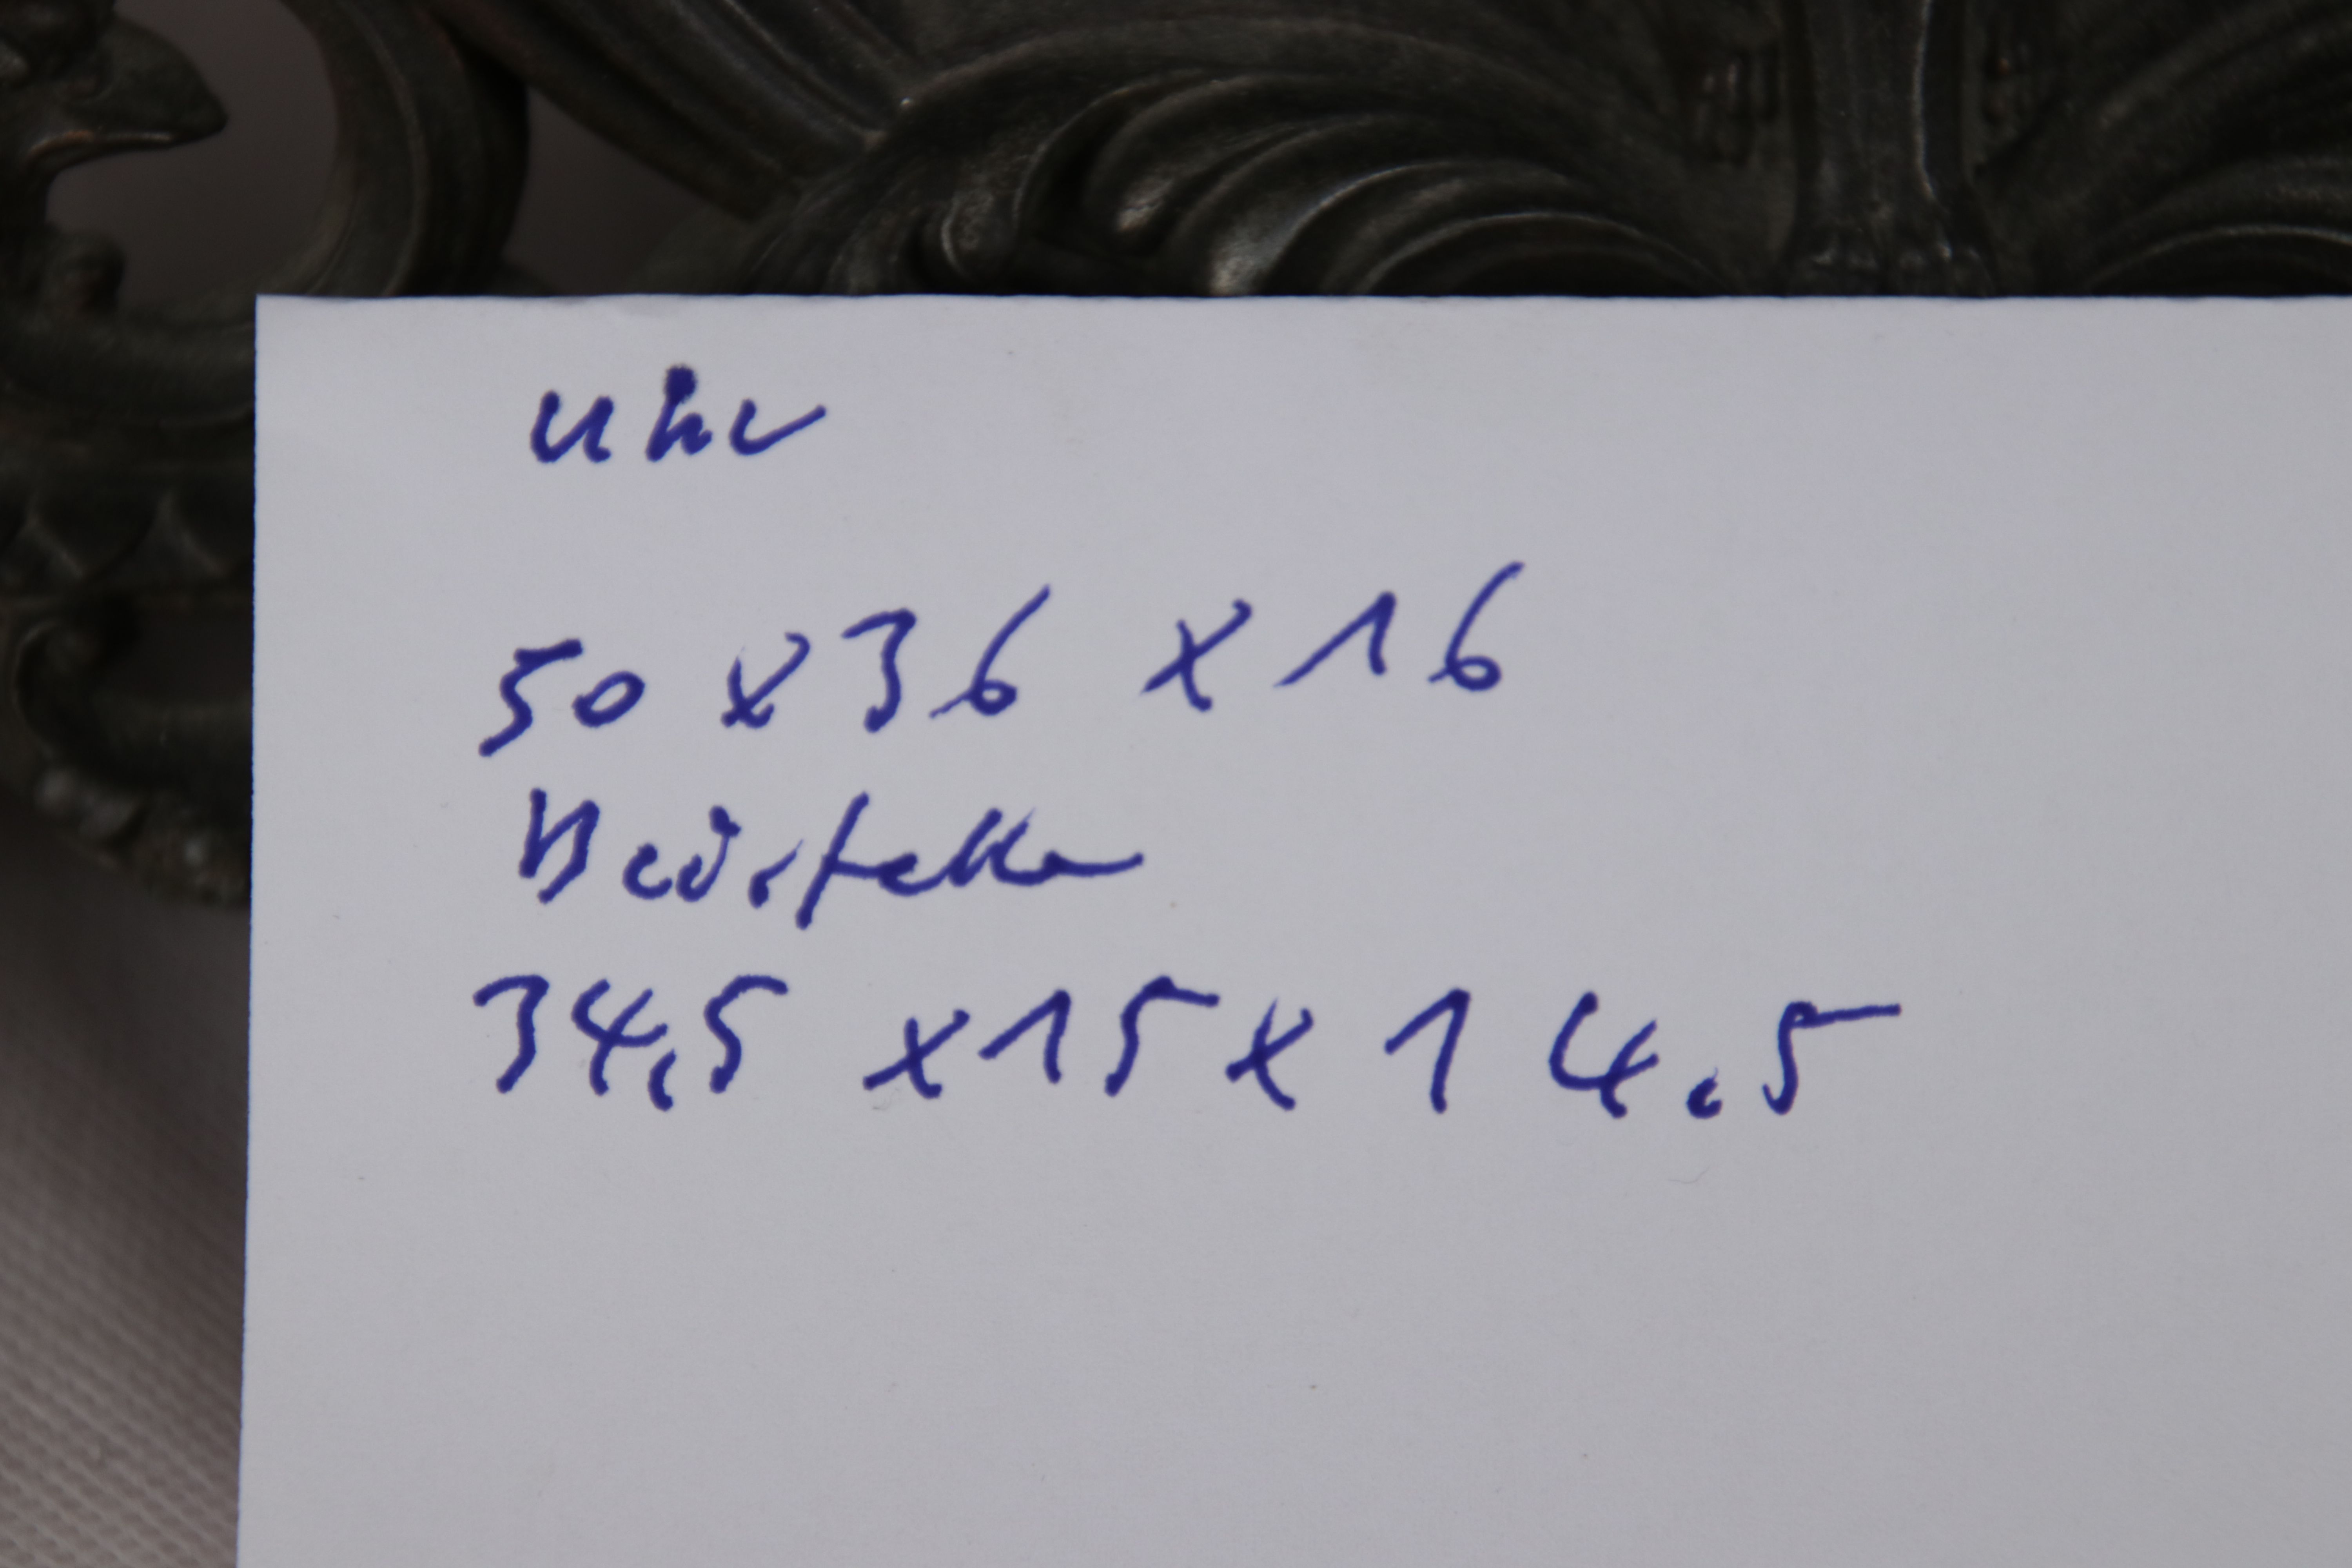 Uhr
50 x 36 x 16
Beisteller
34,5 x 15 x 14.5